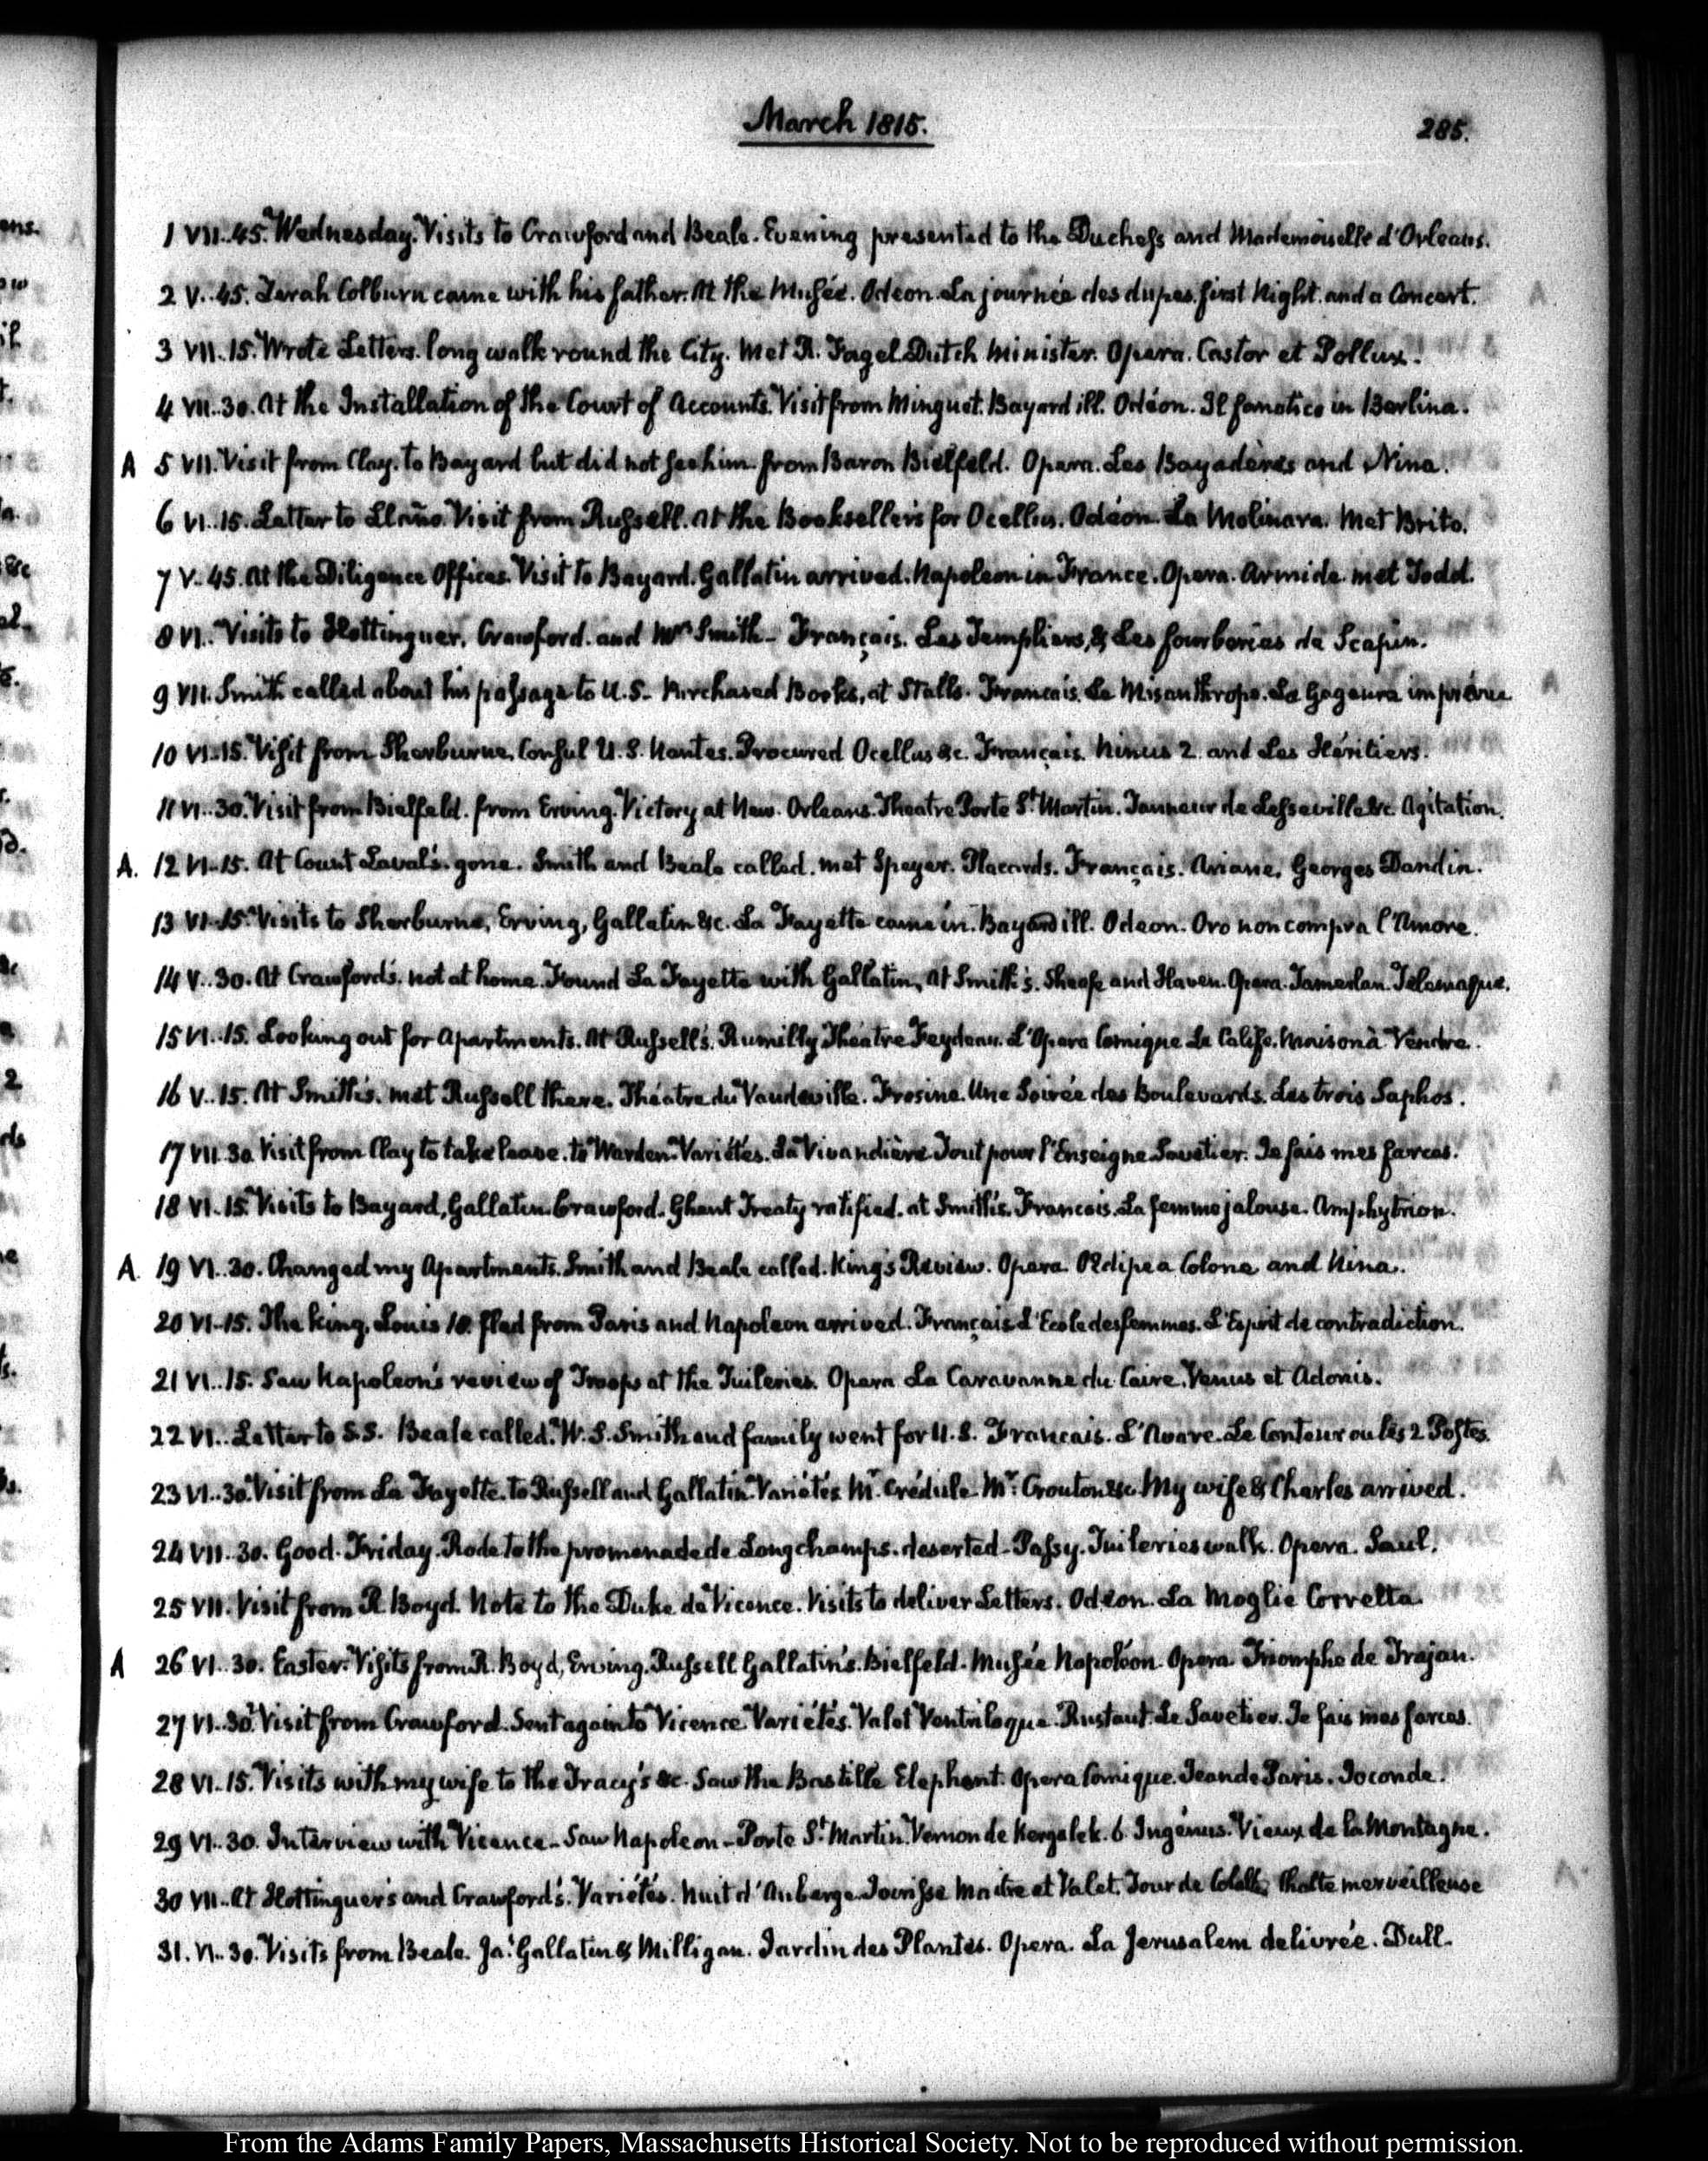 March 1815.
285.
1 VII..45. Wednesday. Visits to Crawford and Beale. Evening presented to the Duchess and Mademoiselle d'Orleans.
2 V..45. Zerah Colburn came with his father. At the Musée. Odeon. La journée des dupes. first Night. and a Concert.
3 VII..15. Wrote Letters. long walk round the City. Met R. Fagel Dutch Minister. Opera. Castor et Pollux.
4 VII..30. At the Installation of the Court of Accounts. Visit from Minguet. Bayard ill. Odéon. Il fanatico in Berlina.
A 5 VII. Visit from Clay. to Bayard but did not see him. from Baron Bielfeld. Opera. Les Bayadères and Nina.
6 VI..15. Letter to Llaño. Visit from Russell. At the Booksellers for Ocellus. Odéon. La Molinara. Met Brito.
7 V..45. At the Diligence Offices. Visit to Bayard. Gallatin arrived. Napoleon in France. Opera. Armide. met Todd.
8 VI.. Visits to Hottinguer, Crawford. and Mrs Smith- Français. Les Templiers, & Les fourberies de Scapin.
9 VII. Smith called about his passage to U.S- Purchased Books, at Stalls. Francais. Le Misanthrope. La Gageure imprévue
10 VI..15. Visit from Sherburne, Consul U.S. Nantes. Procured Ocellus &c. Français. Ninus 2. and Les Héritiers.
11 VI..30. Visit from Bielfeld. from Erving. Victory at New-Orleans. Theatre Porte St. Martin. Tanneur de Lesseville &c. Agitation.
A. 12 VI..15. At Count Laval's. gone. Smith and Beale called. met Speyer. Placards. Français. Ariane. Georges Dandin.
13 VI..15. Visits to Sherburne, Erving, Gallatin &c. La Fayette came in. Bayard ill. Odeon. Oro non compra l'Amore.
14 V..30. At Crawford's. not at home. Found La Fayette with Gallatin, at Smith's. Sheafe and Haven. Opera. Tamerlan. Telemaque.
15 VI..15. Looking out for Apartments. At Russell's. Rumilly Theatre Feydeau. L'Opera Comique Le Calife. Maison à Vendre.
16 V..15. At Smith's. met Russell there. Théatre du Vaudeville. Frosine. Une Soirée des Boulevards. Les trois Saphos.
17 VII..30. Visit from Clay to take leave. to Warden. Variétés. La Vivandière Tout pour l'Enseigne Savetier. Je fais mes farces.
18 VI..15. Visits to Bayard, Gallatin. Crawford. Ghent Treaty ratified. at Smith's. Francois. La femme jalouse. Amphytrion.
A. 19 VI..30. Changed my Apartments. Smith and Beale called. King's Review. Opera. Œdipe a Colone and Nina.
20 VI..15. The King, Louis 18. fled from Paris and Napoleon arrived. Français L'Ecole des femmes. L'Esprit de contradiction.
21 VI..15. Saw Napoleon's review of Troops at the Tuileries. Opera La Caravanne du Caire. Venus et Adonis.
22 VI.. Letter to S.S. Beale called. W.S. Smith and family went for U.S. Francais. L'Avare. Le Conteur ou les 2 Postes.
23 VI..30. Visit from La Fayette. to Russell and Gallatin. Variétés Mr. Crédule Mr. Crouton &c. My wife & Charles arrived.
24 VII..30. Good-Friday. Rode to the promenade de Longchamps. deserted- Passy. Tuileries walk. Opera. Saul.
25 VII. Visit from R. Boyd. Note to the Duke de Vicence. Visits to deliver Letters. Odéon. La Moglie Corretta.
A 26 VI..30. Easter. Visits from R. Boyd, Erving. Russell Gallatin's. Bielfeld. Musée Napoléon. Opera Triomphe de Trajan.
27 VI..30. Visit from Crawford. Sent again to Vicence Variétés. Valet Ventriloque. Rustaut. Le Savetier. Je fais mes farces.
28 VI..15. Visits with my wife to the Tracy's &c. Saw the Bastille Elephant. Opera Comique. Jean de Paris. Joconde.
29 VI..30. Interview with Vicence- Saw Napoleon- Porte St. Martin. Vernon de Kergalek. 6 Ingénus. Vieux de la Montagne.
30 VII.. At Hottinguer's and Crawford's. Variétés. Nuit d'Auberge. Jocrisse Maitre et Valet. Tour de Chatte merveilleuse
31. VI..30. Visits from Beale. Ja. Gallatin & Milligan. Jardin des Plantes. Opera. La Jerusalem delivrée. Dull.
From the Adams Family Papers, Massachusetts Historical Society. Not to be reproduced without permission.